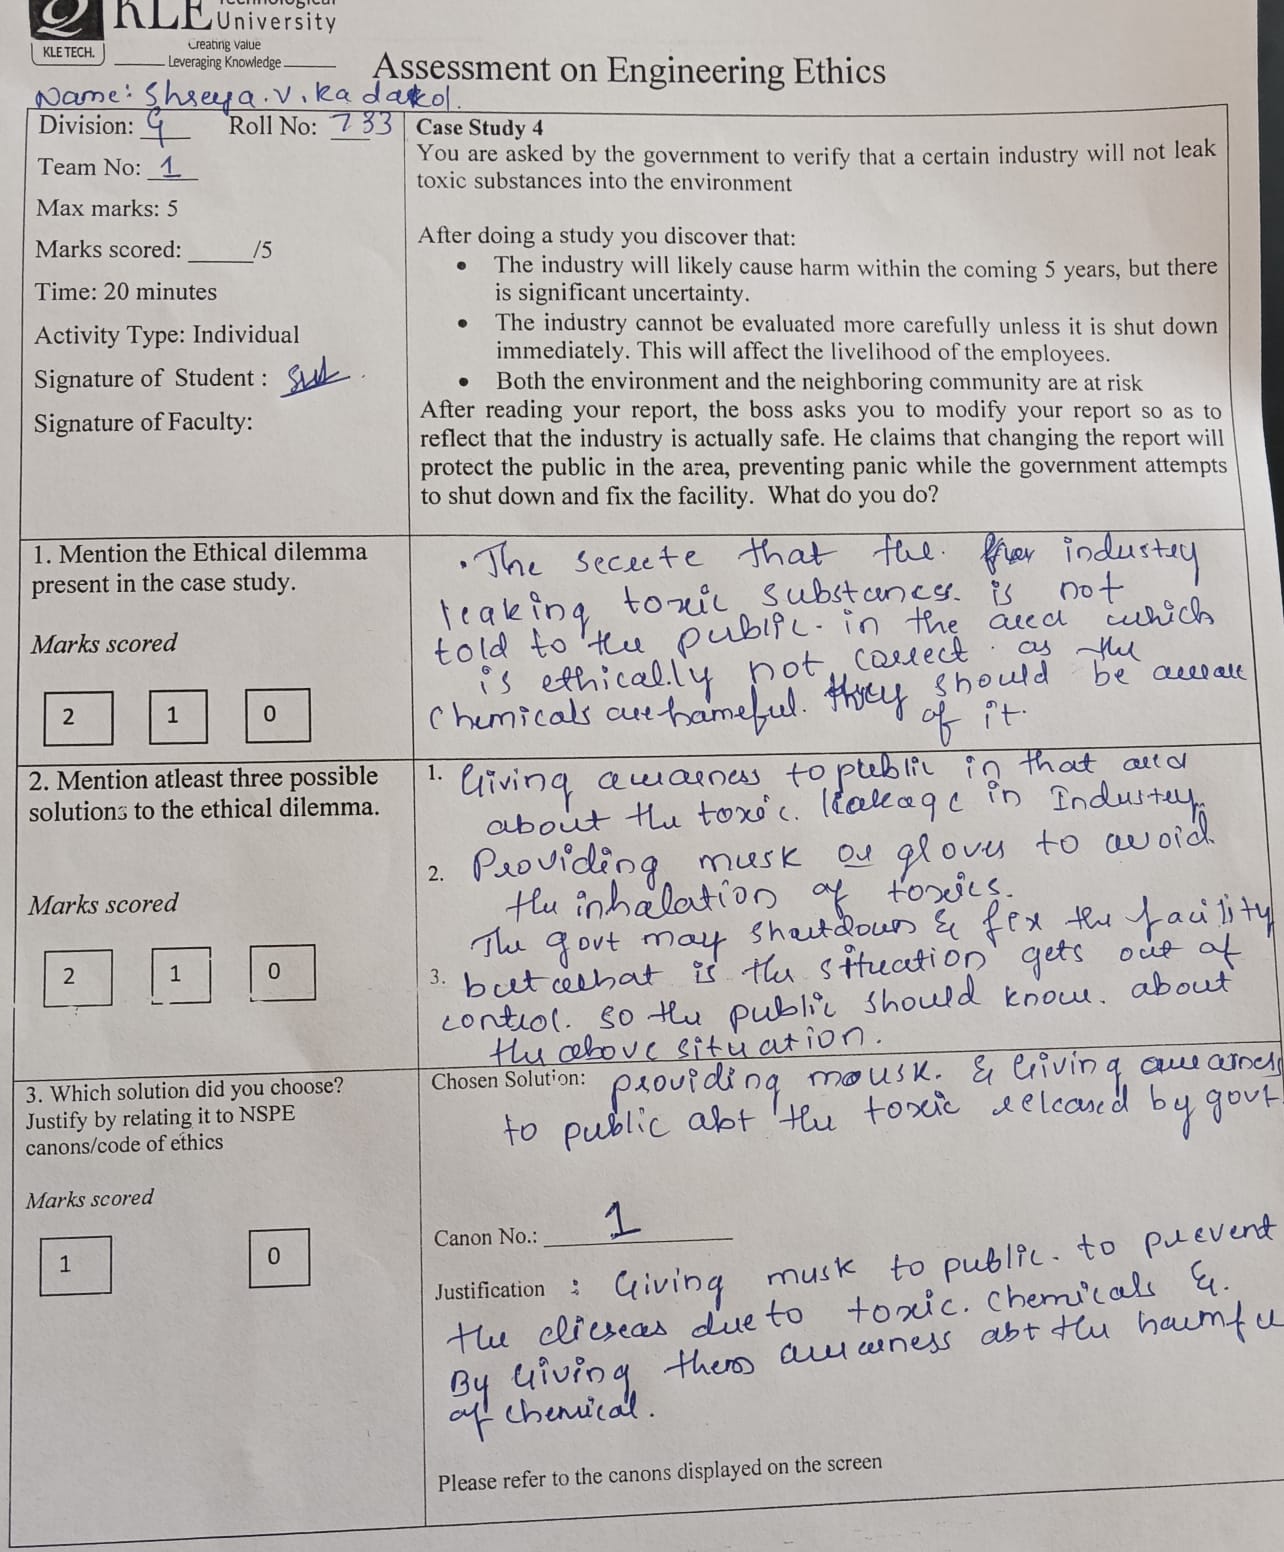 KLE
University
KLE TECH.
Creating Value
Leveraging Knowledge
Assessment on Engineering Ethics
Name: Shreya.V.Kadakol.
Division: G Roll No: 733
Team No: 1
Max marks: 5
Marks scored: ______/5
Time: 20 minutes
Activity Type: Individual
Signature of Student :
Signature of Faculty:
Case Study 4
You are asked by the government to verify that a certain industry will not leak
toxic substances into the environment
After doing a study you discover that:
• The industry will likely cause harm within the coming 5 years, but there
is significant uncertainty.
• The industry cannot be evaluated more carefully unless it is shut down
immediately. This will affect the livelihood of the employees.
• Both the environment and the neighboring community are at risk
After reading your report, the boss asks you to modify your report so as to
reflect that the industry is actually safe. He claims that changing the report will
protect the public in the area, preventing panic while the government attempts
to shut down and fix the facility. What do you do?
1. Mention the Ethical dilemma
present in the case study.
Marks scored
2 1 0
. The secrete that the industry
leaking toxic substances. is not
told to the public. in the area which
is ethically not correct. as the
chemicals are hameful. they should be aware
of it.
2. Mention atleast three possible
solutions to the ethical dilemma.
Marks scored
2 1 0
1. Giving awarness to public in that area
about the toxic. leakage in Industry.
2. Providing musk or gloves to avoid
the inhalation of toxics.
The govt may shoutdown & fix the facility
3. but what is the situation gets out of
control. so the public should know. about
the above situation.
3. Which solution did you choose?
Justify by relating it to NSPE
canons/code of ethics
Marks scored
1 0
Chosen Solution: providing mousk. & Giving awarness
to public abt the toxic released by govt
Canon No.: 1
Justification : Giving musk to public. to prevent
the dieseas due to toxic. chemicals &.
By Giving them awarness abt the harmfu
of chemical.
Please refer to the canons displayed on the screen